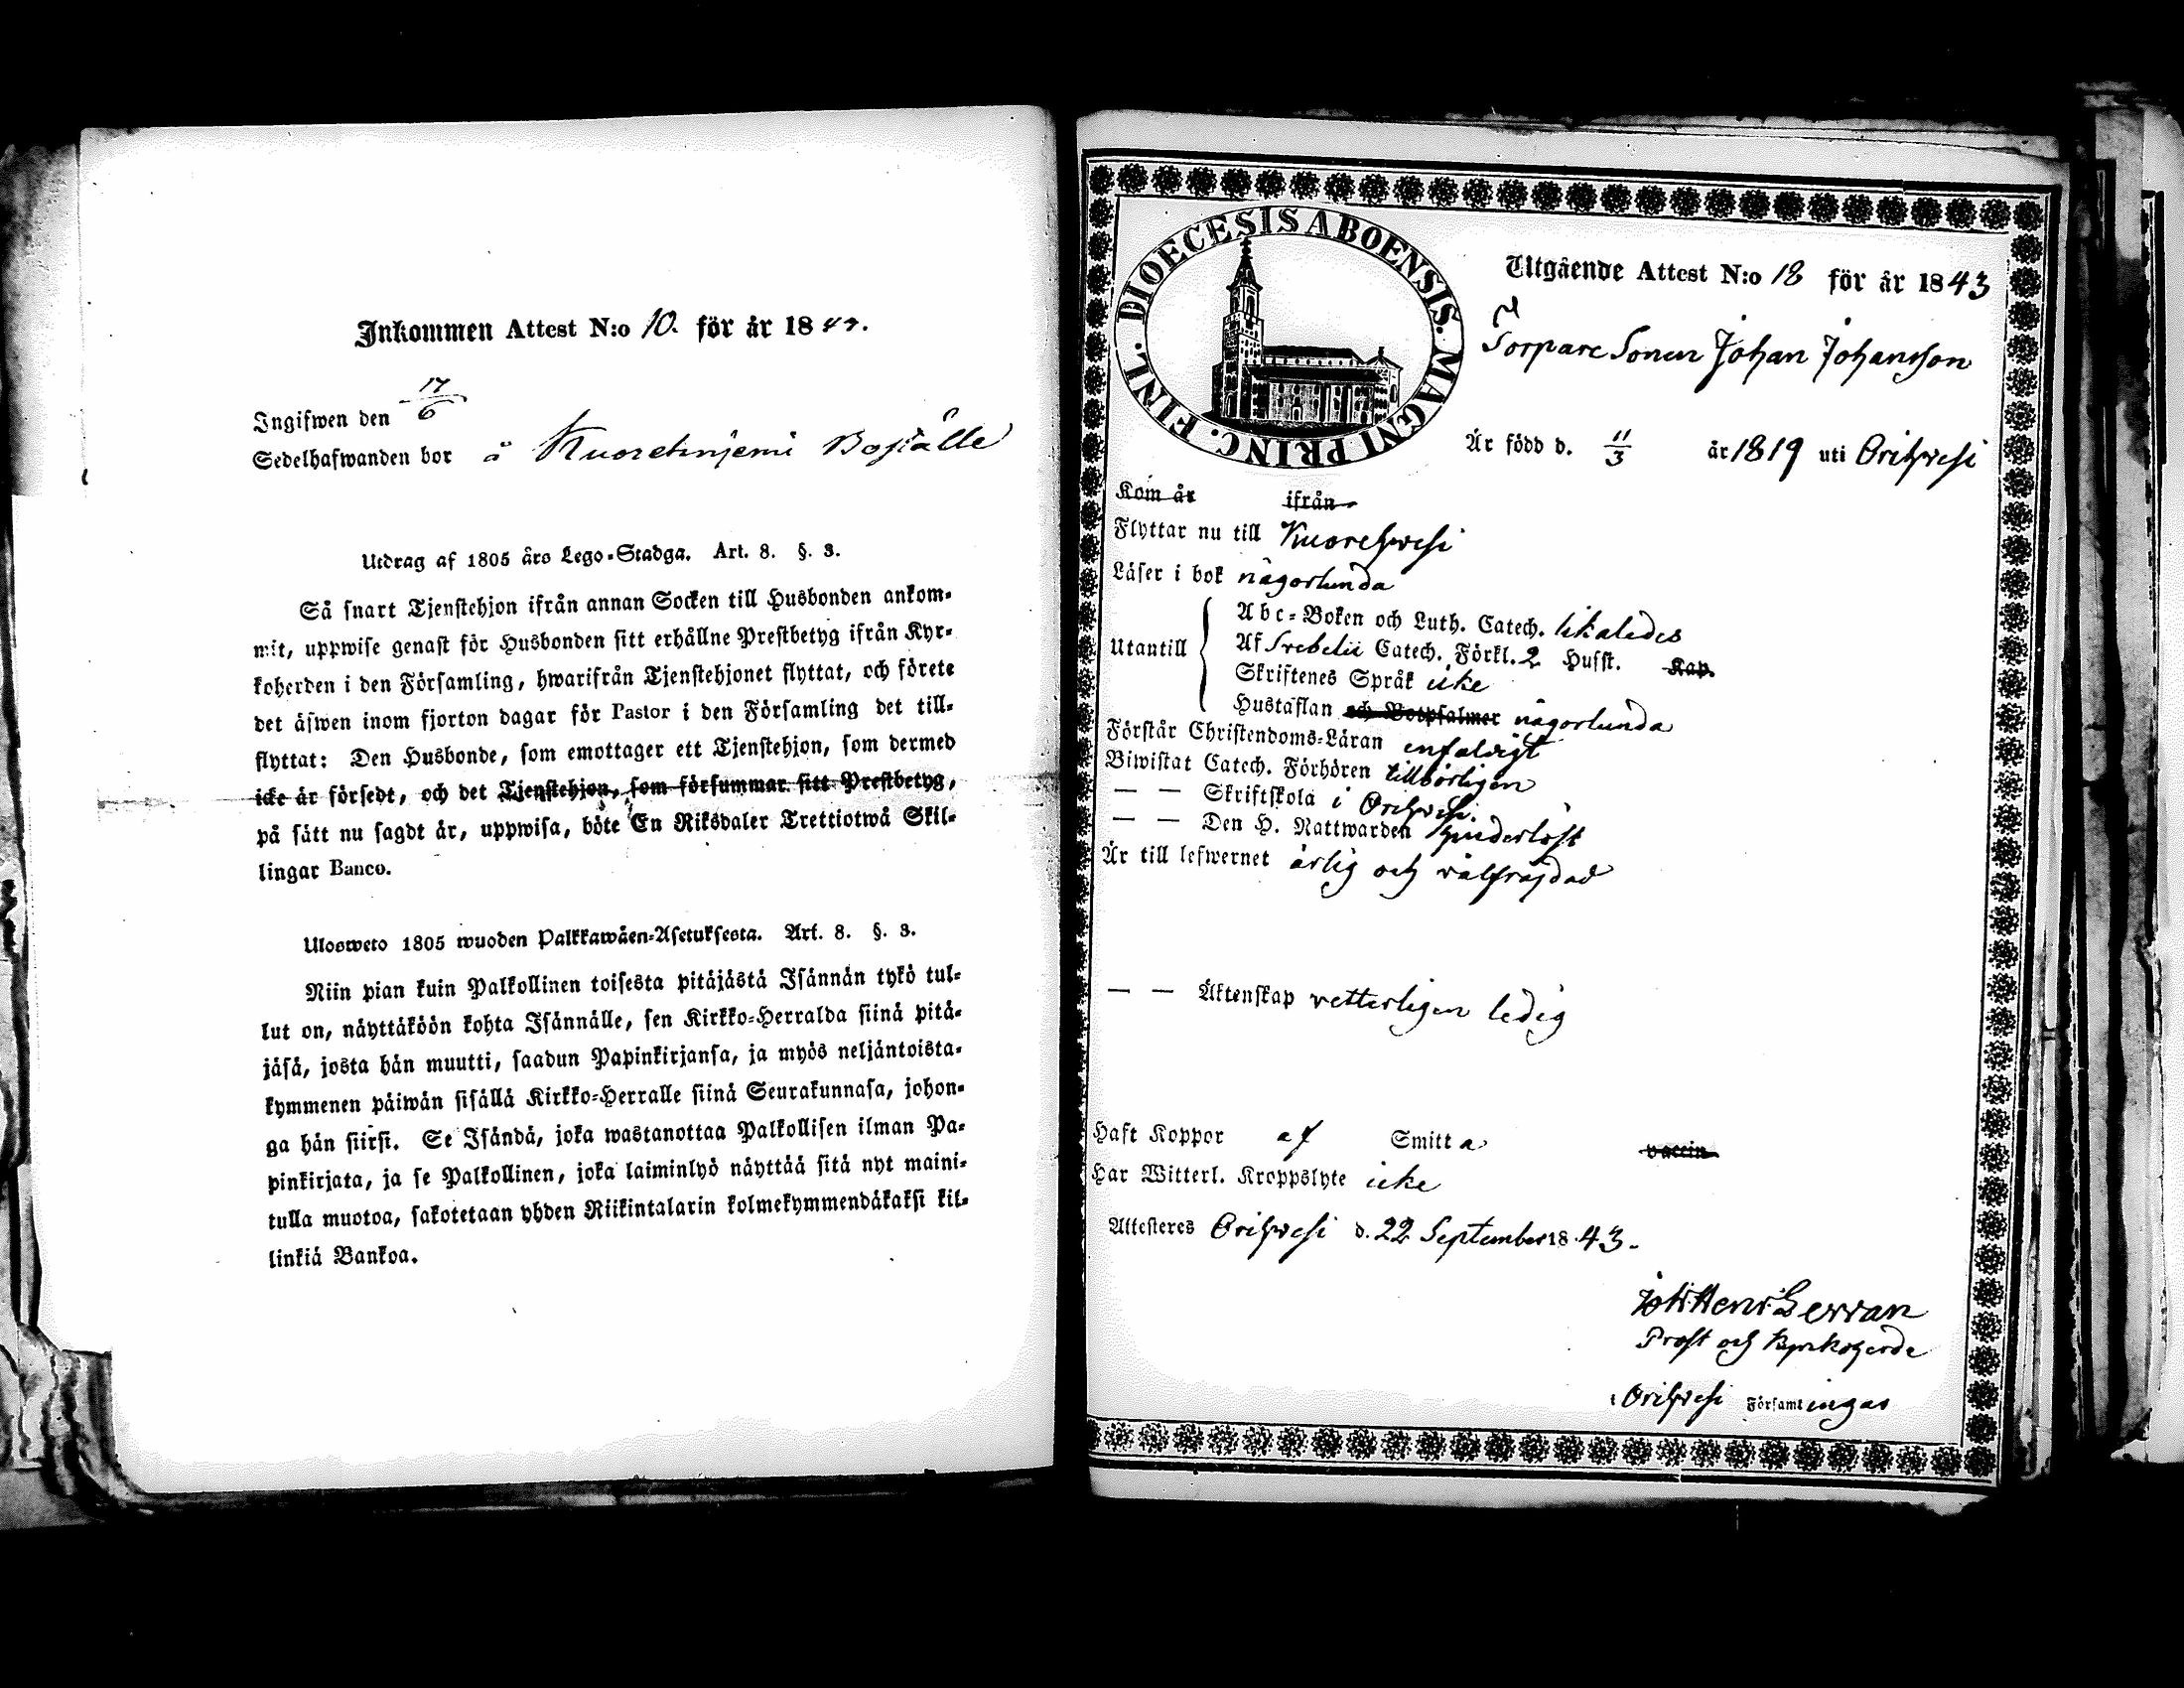 Inkommen Attest N:o 10. för år 1847.
Ingifwen den 17/6
Sedelhafwanden bor å Kuorehnjemi Boställe
Utdrag af 1805 års Lego-Stadga. Art. 8. §. 3.
Så snart Tjenstehjon ifrån annan Socken till Husbonden ankom-
mit, uppwise genast för Husbonden sitt erhållne Prestbetyg ifrån Kyr-
koherden i den Församling, hwarifrån Tjenstehjonet flyttat, och förete
det äfwen inom fjorton dagar för Pastor i den Församling det till-
flyttat: Den Husbonde, som emottager ett Tjenstehjon, som dermed
icke är försedt, och det Tjenstehjon, som försummar sitt Prestbetyg,
på sätt nu sagdt är, uppwisa, böte En Riksdaler Trettiotwå Skil-
lingar Banco.
Ulosweto 1805 wuoden Palkkawäen-Asetuksesta. Art. 8. §. 3.
Niin pian kuin Palkollinen toisesta pitäjästä Isännän tykö tul-
lut on, näyttäköön kohta Isännälle, sen Kirkko-Herralda siinä pitä-
jäsä, josta hän muutti, saadun Papinkirjansa, ja myös neljäntoista-
kymmenen päiwän sisällä Kirkko-Herralle siinä Seurakunnasa, johon-
ga hän siirsi. Se Isändä, joka wastanottaa Palkollisen ilman Pa-
pinkirjata, ja se Palkollinen, joka laiminlyö näyttää sitä nyt maini-
tulla muotoa, sakotetaan yhden Riikintalarin kolmekymmendäkaksi kil-
linkiä Bankoa.
DIOECESIS ABOENSIS. MAGNI PRINC. FINL.
Utgående Attest N:o 18 för år 1843
Torpare Sonen Johan Johansson
Är född d. 11/3 år 1819 uti Orihvesi
Kom år ifrån
Flyttar nu till Kuorehvesi
Läser i bok någorlunda
Utantill
Abc-Boken och Luth. Catech. likaledes
Af Svebelii Catech. Förkl. 2 Husst. Kap.
Skriftenes Språk icke
Hustaflan och Botpsalmer någorlunda
Förstår Christendoms-Läran enfaldigt
Biwistat Catech. Förhören tillbörligen
— — Skriftskola i Orihvesi.
— — Den H. Nattwarden hinderlöst
Är till lefwernet ärlig och välfrejdad
— — Äktenskap vetterligen ledig
Haft Koppor af Smitta vaccin
Har Witterl. Kroppslyte icke
Attesteres Orihvesi d. 22 September 1843.
Prost och Kyrkoherde
i Orihvesi Församlingar